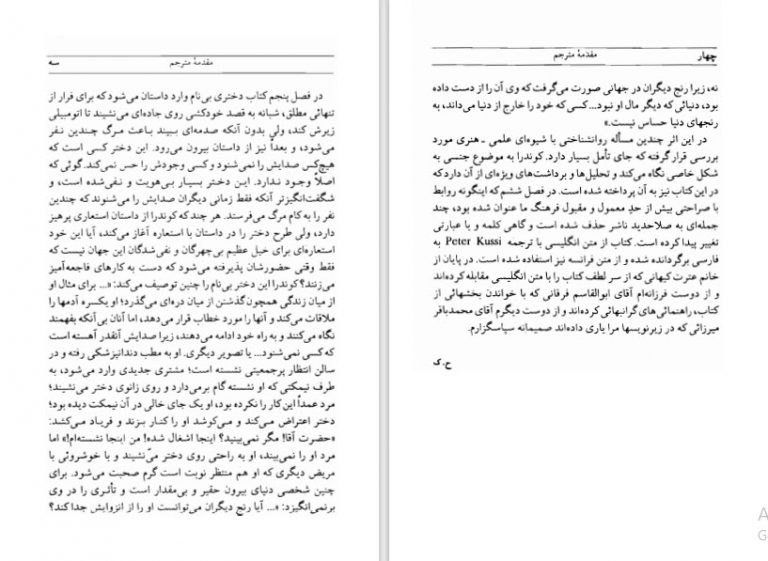 مقدمهٔ مترجم سه
در فصل پنجم کتاب دختری بی‌نام وارد داستان می‌شود که برای فرار از
تنهائی مطلق، شبانه به قصد خودکشی روی جاده‌ای می‌نشیند تا اتومبیلی
زیرش کند، ولی بدون آنکه صدمه‌ای ببیند باعث مرگ چندین نفر
می‌شود، و بعداً نیز از داستان بیرون می‌رود. این دختر کسی است که
هیچ‌کس صدایش را نمی‌شنود و کسی وجودش را حس نمی‌کند. گوئی که
اصلاً وجود ندارد. این دختر بسیار بی‌هویت و نفی‌شده است، و
شگفت‌انگیزتر آنکه فقط زمانی دیگران صدایش را می‌شنوند که چندین
نفر را به کام مرگ می‌فرستد. هر چند که کوندرا از داستان استعاری پرهیز
دارد، ولی طرح دختر را در داستان با استعاره آغاز می‌کند، آیا این خود
استعاره‌ای برای خیل عظیم بی‌چهرگان و نفی‌شدگان این جهان نیست که
فقط وقتی حضورشان پذیرفته می‌شود که دست به کارهای فاجعه‌آمیز
می‌زنند؟ کوندرا این دختر بی‌نام را چنین توصیف می‌کند: «... برای مثال او
از میان زندگی همچون گذشتن از میان دره‌ای می‌گذرد؛ او یکسره آدمها را
ملاقات می‌کند و آنها را مورد خطاب قرار می‌دهد، اما آنان بی‌آنکه بفهمند
نگاه می‌کنند و به راه خود ادامه می‌دهند، زیرا صدایش آنقدر آهسته است
که کسی نمی‌شنود... یا تصویر دیگری. او به مطب دندانپزشکی رفته و در
سالن انتظار پرجمعیتی نشسته است؛ مشتری جدیدی وارد می‌شود، به
طرف نیمکتی که او نشسته گام برمی‌دارد و روی زانوی دختر می‌نشیند؛
مرد عمداً این کار را نکرده بود، او یک جای خالی در آن نیمکت دیده بود؛
دختر اعتراض می‌کند و می‌کوشد او را کنار بزند و فریاد می‌کشد:
«حضرت آقا! مگر نمی‌بینید؟ اینجا اشغال شده! من اینجا نشسته‌ام!» اما
مرد او را نمی‌بیند، او به راحتی روی دختر می‌نشیند و با خوشروئی با
مریض دیگری که او هم منتظر نوبت است گرم صحبت می‌شود. برای
چنین شخصی دنیای بیرون حقیر و بی‌مقدار است و تأثیری را در وی
برنمی‌انگیزد: «... آیا رنج دیگران می‌توانست او را از انزوایش جدا کند؟
چهار مقدمهٔ مترجم
نه، زیرا رنج دیگران در جهانی صورت می‌گرفت که وی آن را از دست داده
بود، دنیائی که دیگر مال او نبود... کسی که خود را خارج از دنیا می‌داند، به
رنجهای دنیا حساس نیست.»
در این اثر چندین مسأله روانشناختی با شیوه‌ای علمی ـ هنری مورد
بررسی قرار گرفته که جای تأمل بسیار دارد. کوندرا به موضوع جنسی به
شکل خاصی نگاه می‌کند و تحلیل‌ها و برداشت‌های ویژه‌ای از آن دارد که
در این کتاب نیز به آن پرداخته شده است. در فصل ششم که اینگونه روابط
با صراحتی بیش از حدِ معمول و مقبول فرهنگ ما عنوان شده بود، چند
جمله‌ای به صلاحدید ناشر حذف شده است و گاهی کلمه و یا عبارتی
تغییر پیدا کرده است. کتاب از متن انگلیسی با ترجمه Peter Kussi به
فارسی برگردانده شده و از متن فرانسه نیز استفاده شده است. در پایان از
خانم عترت کیهانی که از سر لطف کتاب را با متن انگلیسی مقابله کرده‌اند
و از دوست فرزانه‌ام آقای ابوالقاسم فرقانی که با خواندن بخشهائی از
کتاب، راهنمائی‌های گرانبهائی کرده‌اند و از دوست دیگرم آقای محمدباقر
میرزائی که در زیرنویسها مرا یاری داده‌اند صمیمانه سپاسگزارم.
ح. ک